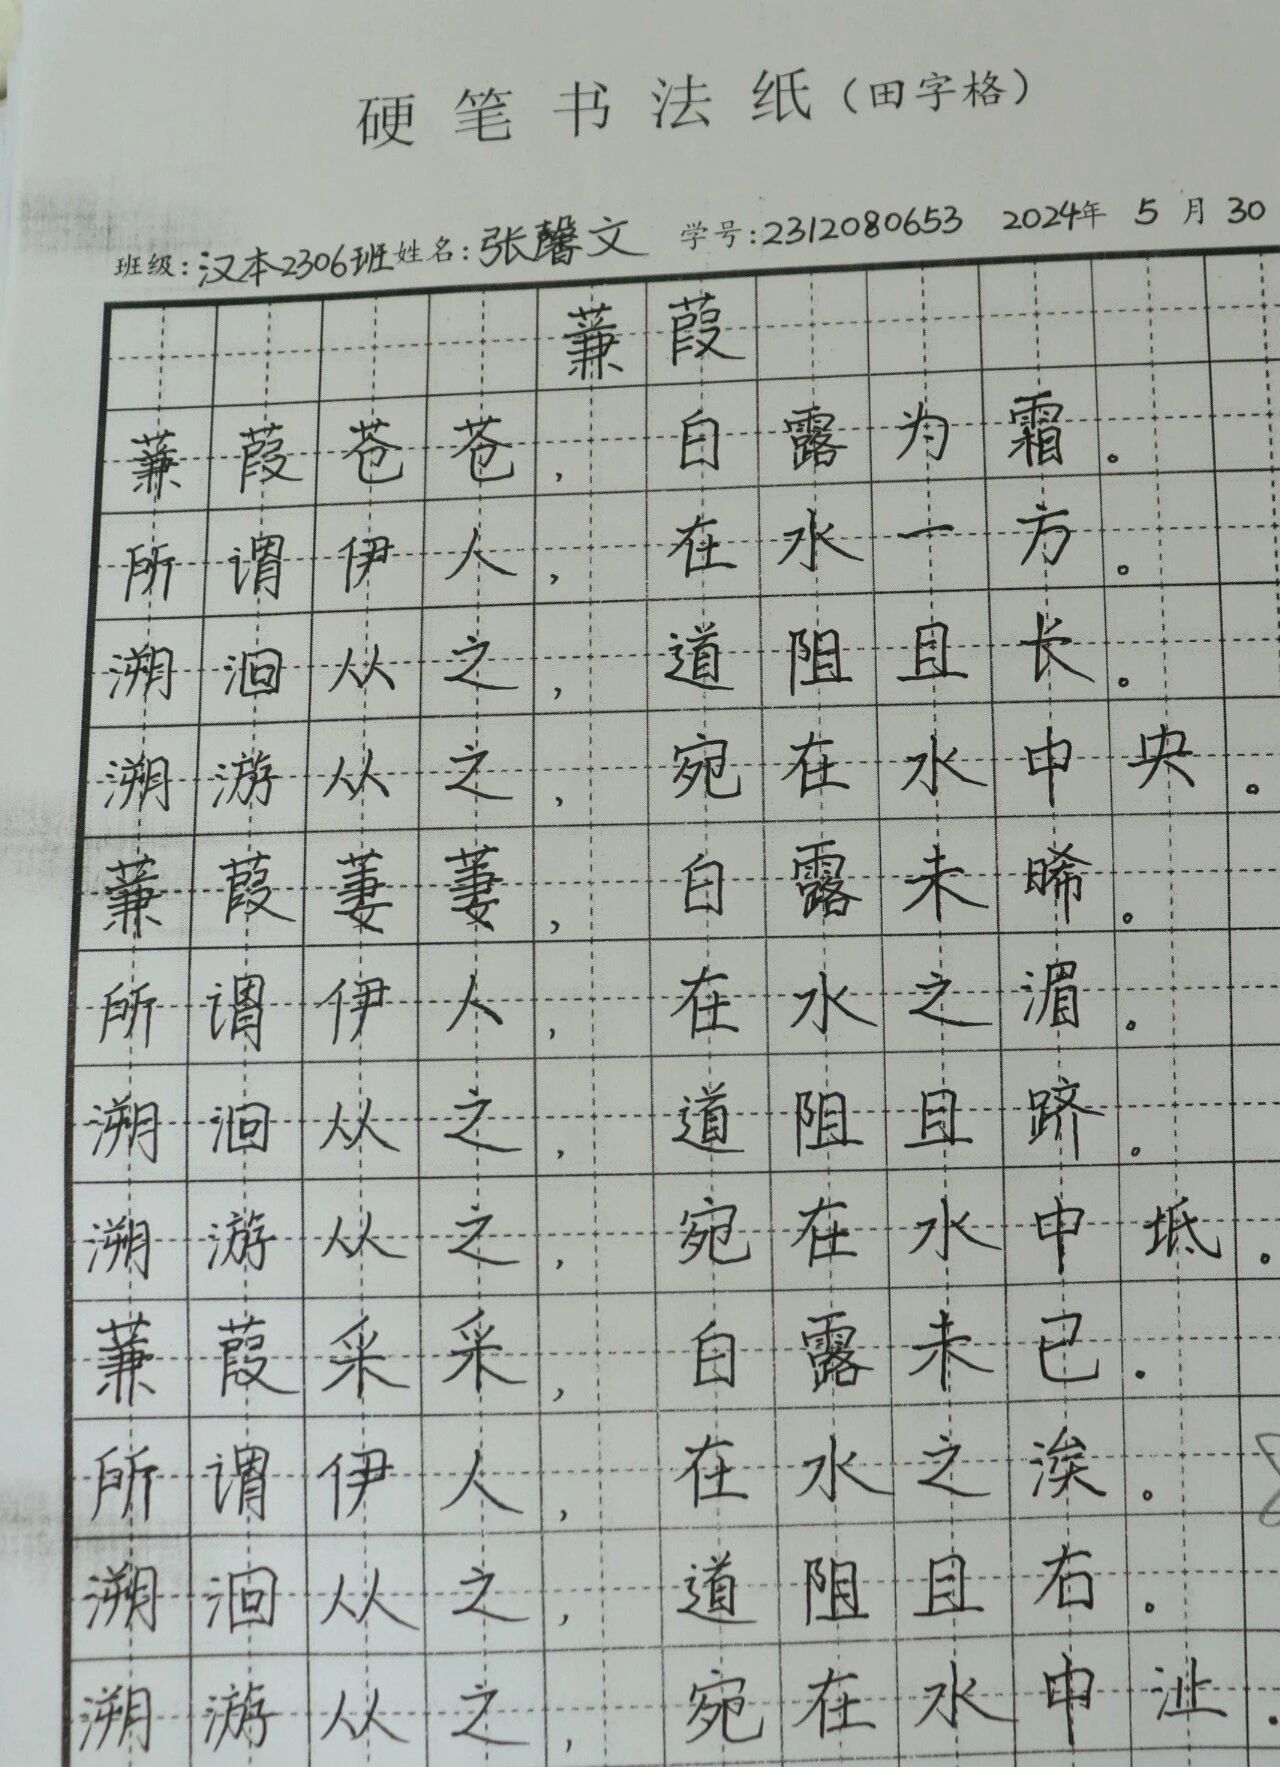 硬笔书法纸(田字格)
班级:汉本2306班 姓名:张馨文 学号:2312080653 2024年 5 月 30
蒹葭
蒹葭苍苍,白露为霜。
所谓伊人,在水一方。
溯洄从之,道阻且长。
溯游从之,宛在水中央。
蒹葭萋萋,白露未晞。
所谓伊人,在水之湄。
溯洄从之,道阻且跻。
溯游从之,宛在水中坻。
蒹葭采采,白露未已.
所谓伊人,在水之涘。
溯洄从之,道阻且右。
溯游从之,宛在水中沚.